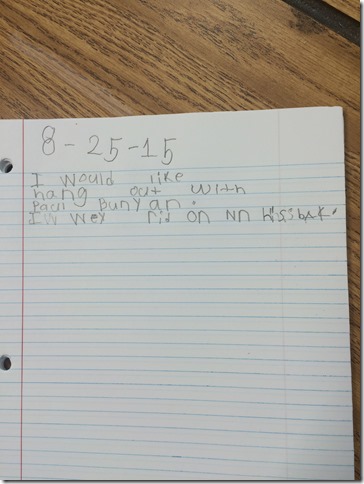 8-25-15
I would like
hang out with
Paul Bunyan.
Iw wey rid on Nn hissbak.